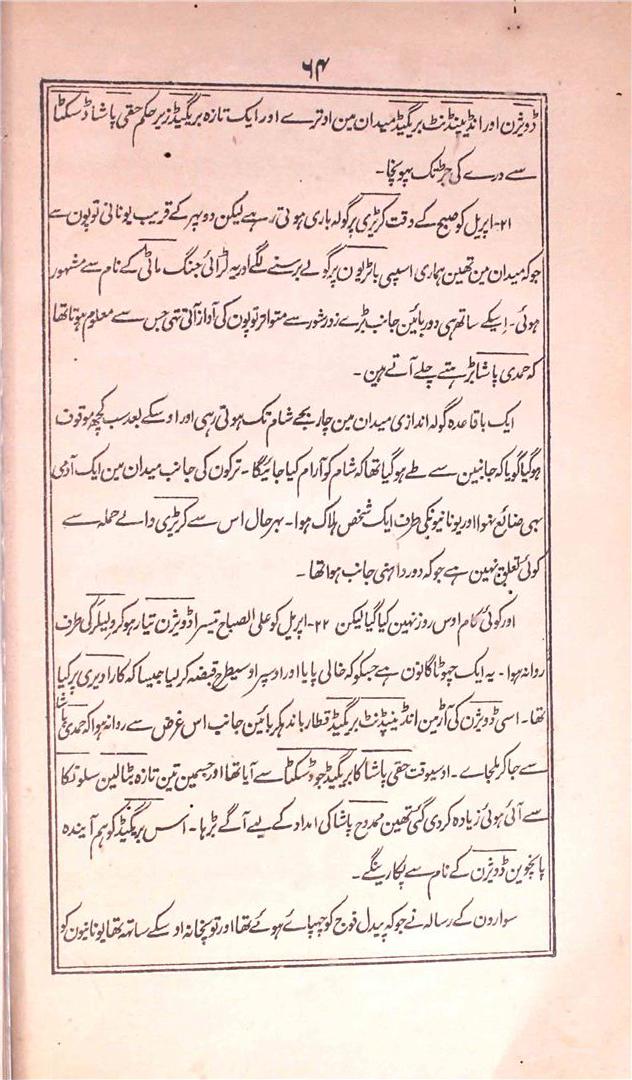 ۶۴
ڈویژن اور انڈیپنڈنٹ بریگیڈ میدان مین اوترے اور ایک تازہ بریگیڈ زیر حکم حقی پاشا ڈسکٹا
سے درے کی جڑ تک پہونچا۔
۲۱۔ اپریل کو صبح کے وقت کرٹیری پر گولہ باری ہوتی رہے لیکن دوپہر کے قریب یونانی توپون سے
جو کہ میدان مین تھین ہماری اسپی باٹریون پر گولے برسنے لگے اور یہ لڑائی جنگ ماٹی کے نام سے مشہور
ہوئی۔ اِسکے ساتھ ہی دور بائین جانب بڑے زور شور سے متواتر توپون کی آواز آتی تہی جس سے معلوم ہوتا تھا
کہ حمدی پاشا بڑہتے چلے آتے ہین۔
ایک باقاعدہ گولہ اندازی میدان مین چار بجے شام تک ہوتی رہی اور اوسکے بعد سب کچھ موقوف
ہو گیا گویا کہ جانبین سے طے ہو گیا تھا کہ شام کو آرام کیا جائیگا۔ ترکون کی جانب میدان مین ایک آدمی
بہی ضائع نہوا اور یونانیونکی طرف ایک شخص ہلاک ہوا۔ بہر حال اس سے کرٹیری والے حملہ سے
کوئی تعلق نہین ہے جو کہ دور داہنی جانب ہوا تھا۔
اور کوئی کام اوس روز نہین کیا گیا لیکن ۲۲۔ اپریل کو علی الصباح تیسرا ڈویژن تیار ہو کر ولیلر کی طرف
روانہ ہوا۔ یہ ایک چہوٹا گانون ہے جسکو کہ خالی پایا اور اوسپر اوسیطرح قبضہ کر لیا جیسا کہ کارادیری پر کیا
تھا۔ اسی ڈویژن کی آڑ مین انڈیپنڈنٹ بریگیڈ قطار باندہ کر بائین جانب اس غرض سے روانہ ہوا کہ حمدی پاشا
سے جا کر ملجاے۔ اوسیوقت حقی پاشا کا بریگیڈ جو ڈسکٹا سے آیا تھا اور جسمین تین تازہ بٹالین سلونکا
سے آئی ہوئی زیادہ کر دی گئی تھین ممدوح پاشا کی امداد کے لیے آگے بڑہا۔ اُس بریگیڈ کو ہم آیندہ
پانچوین ڈویژن کے نام سے پکارینگے۔
سوارون کے رسالہ نے جو کہ پیدل فوج کو چہپاے ہوئے تھا اور توپخانہ اوسکے ساتہ تھا یونانیون کو